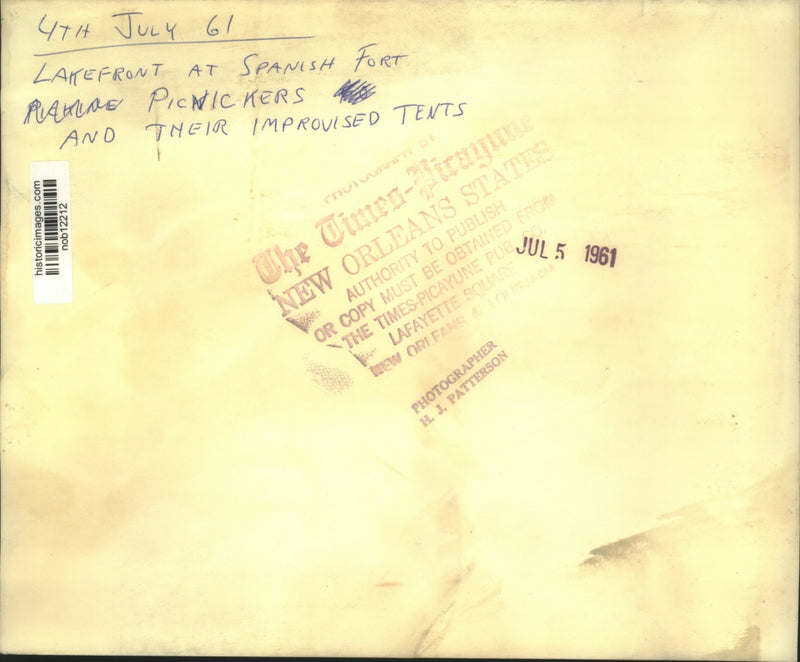 4TH JULY 61
LAKEFRONT AT SPANISH FORT
PICNICKERS
AND THEIR IMPROVISED TENTS
historicimages.com
nob12212
PHOTOGRAPH BY
The Times-Picayune
NEW ORLEANS STATES
AUTHORITY TO PUBLISH
OR COPY MUST BE OBTAINED FROM
THE TIMES-PICAYUNE PUB. CO.
LAFAYETTE SQUARE
NEW ORLEANS LOUISIANA
JUL 5 1961
PHOTOGRAPHER
H. J. PATTERSON